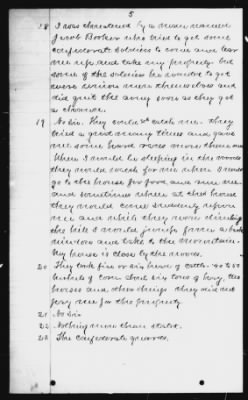 5
18 I was threatened by a man named
Jacob Booker who tried to get some
confederate soldiers to come and
me up and take my property but
some of the soldiers he wanted to get
were union men themselves and
did quit the army soon as they got
a chance.
19 No sir. They couldn't catch me. they
tried a good many times and gave
me some hard races more than once
When I would be sleeping in the woods
they would watch for me when I would
go to the house for food and run me
and sometimes when at the house
they would come suddenly upon
me and which they were climbing
the hill I would jump from a back
window and take to the mountain.
My house is close by the woods.
20 They took five or six head of cattle. 40 to 50
bushels of corn about six tons of hay, two
horses and other things they did not
pay me for the property
21 No sir
22 Nothing more than stated.
23 The confederate guards.